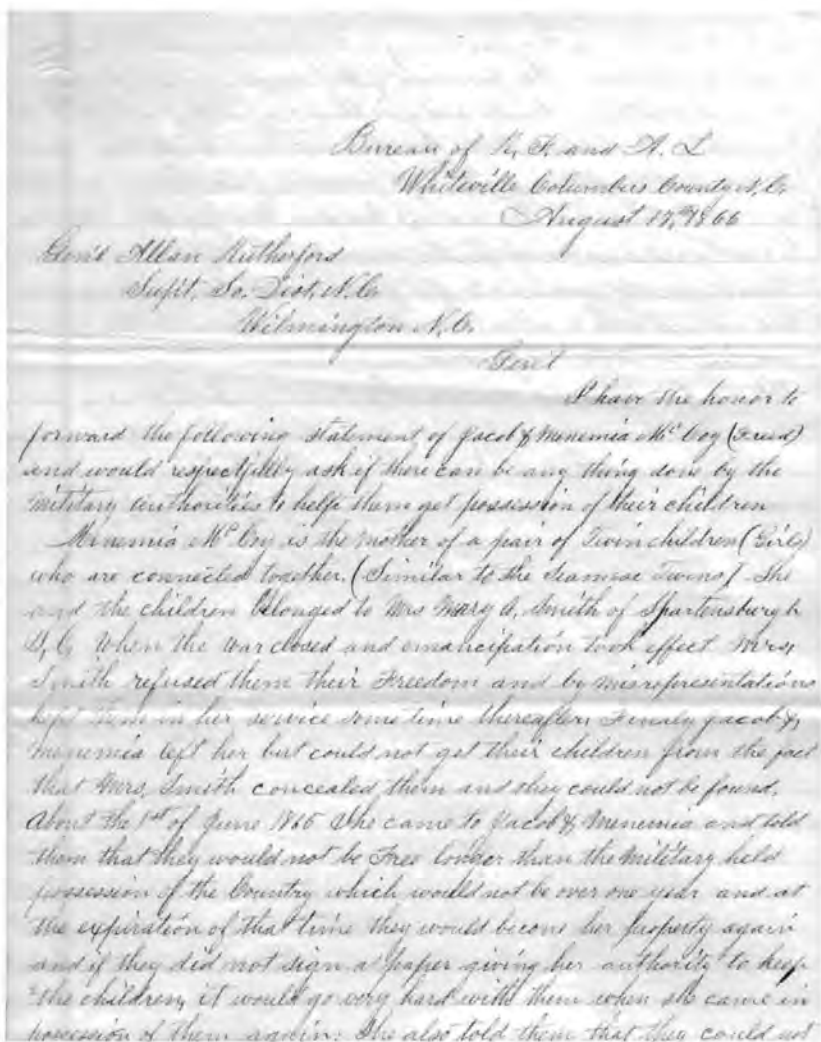 Bureau of R, F. and A. L
Whiteville Columbus County N, C,
August 17, 1866
Gen'l Allan Rutherford
Supt, So. Dist, N. C,
Wilmington N, C,
Gen'l
I have the honor to
forward the following statement of Jacob & Menemia Mc Coy (Freed)
and would respectfully ask if there can be any thing done by the
Military authorities to help them get possession of their children
Menemia Mc Coy is the mother of a pair of Twin children (Girls)
who are connected together. (Similar to the Seamese Twins) She
and the children belonged to Mrs Mary A, Smith of Spartensburgh
S, C, When the war closed and emancipation took effect Mrs,
Smith refused them their Freedom and by misrepresentations
kept them in her service some time thereafter, Finaly Jacob &,
Menemia left her but could not get their children from the fact
that Mrs, Smith concealed them and they could not be found,
About the 1st of June 1865 She came to Jacob & Menemia and told
them that they would not be Free longer than the Military held
possession of the Country which would not be over one year and at
the expiration of that time they would become her property again
and if they did not sign a paper giving her authority to keep
the children, it would go very hard with them when she came in
possession of them again: She also told them that they could not